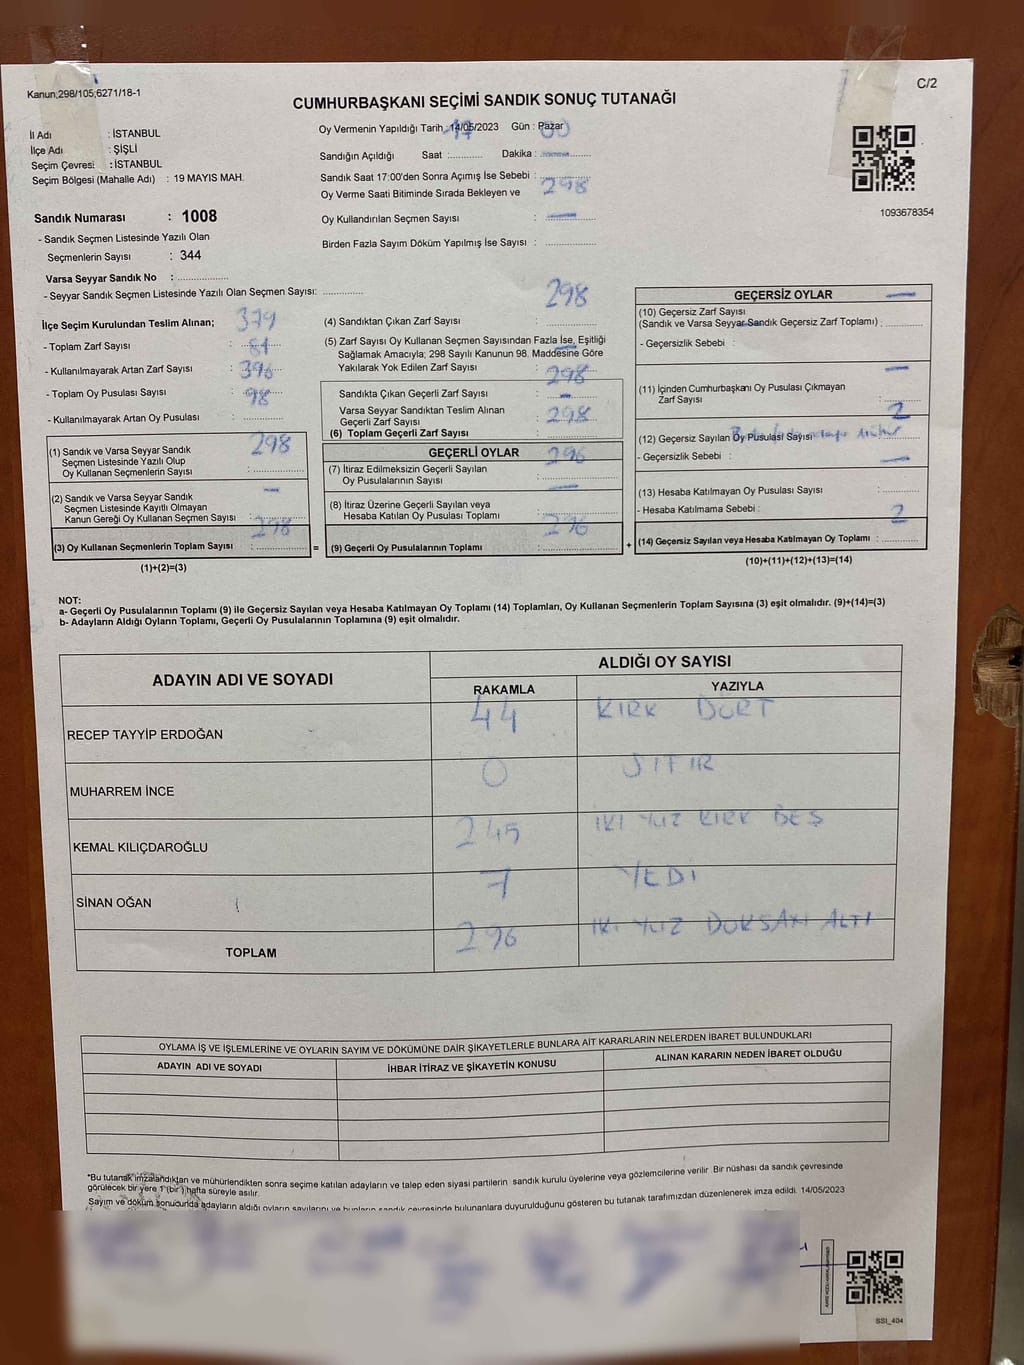 Kanun;298/105;6271/18-1
C/2
CUMHURBAŞKANI SEÇİMİ SANDIK SONUÇ TUTANAĞI
İl Adı : İSTANBUL
İlçe Adı : ŞİŞLİ
Seçim Çevresi : İSTANBUL
Seçim Bölgesi (Mahalle Adı) : 19 MAYIS MAH.
Sandık Numarası : 1008
- Sandık Seçmen Listesinde Yazılı Olan
Seçmenlerin Sayısı : 344
Varsa Seyyar Sandık No :
- Seyyar Sandık Seçmen Listesinde Yazılı Olan Seçmen Sayısı:
Oy Vermenin Yapıldığı Tarih : 14/05/2023 Gün : Pazar
Sandığın Açıldığı Saat 17 Dakika : 00
Sandık Saat 17:00'den Sonra Açımış İse Sebebi :
Oy Verme Saati Bitiminde Sırada Bekleyen ve
Oy Kullandırılan Seçmen Sayısı : 298
Birden Fazla Sayım Döküm Yapılmış İse Sayısı : —
1093678354
İlçe Seçim Kurulundan Teslim Alınan;
- Toplam Zarf Sayısı : 379
- Kullanılmayarak Artan Zarf Sayısı : 81
- Toplam Oy Pusulası Sayısı : 396
- Kullanılmayarak Artan Oy Pusulası : 98
(1) Sandık ve Varsa Seyyar Sandık
Seçmen Listesinde Yazılı Olup
Oy Kullanan Seçmenlerin Sayısı : 298
(2) Sandık ve Varsa Seyyar Sandık
Seçmen Listesinde Kayıtlı Olmayan
Kanun Gereği Oy Kullanan Seçmen Sayısı : —
(3) Oy Kullanan Seçmenlerin Toplam Sayısı : 298
(1)+(2)=(3)
(4) Sandıktan Çıkan Zarf Sayısı : 298
(5) Zarf Sayısı Oy Kullanan Seçmen Sayısından Fazla İse, Eşitliği
Sağlamak Amacıyla; 298 Sayılı Kanunun 98. Maddesine Göre
Yakılarak Yok Edilen Zarf Sayısı : —
Sandıkta Çıkan Geçerli Zarf Sayısı : 298
Varsa Seyyar Sandıktan Teslim Alınan
Geçerli Zarf Sayısı : —
(6) Toplam Geçerli Zarf Sayısı : 298
GEÇERLİ OYLAR
(7) İtiraz Edilmeksizin Geçerli Sayılan
Oy Pusulalarının Sayısı : 296
(8) İtiraz Üzerine Geçerli Sayılan veya
Hesaba Katılan Oy Pusulası Toplamı : —
= (9) Geçerli Oy Pusulalarının Toplamı : 296
GEÇERSİZ OYLAR
(10) Geçersiz Zarf Sayısı
(Sandık ve Varsa Seyyar Sandık Geçersiz Zarf Toplamı) : —
- Geçersizlik Sebebi :
(11) İçinden Cumhurbaşkanı Oy Pusulası Çıkmayan
Zarf Sayısı : —
(12) Geçersiz Sayılan Oy Pusulası Sayısı : 2
- Geçersizlik Sebebi :
(13) Hesaba Katılmayan Oy Pusulası Sayısı : —
- Hesaba Katılmama Sebebi :
+ (14) Geçersiz Sayılan veya Hesaba Katılmayan Oy Toplamı : 2
(10)+(11)+(12)+(13)=(14)
NOT:
a- Geçerli Oy Pusulalarının Toplamı (9) ile Geçersiz Sayılan veya Hesaba Katılmayan Oy Toplamı (14) Toplamları, Oy Kullanan Seçmenlerin Toplam Sayısına (3) eşit olmalıdır. (9)+(14)=(3)
b- Adayların Aldığı Oyların Toplamı, Geçerli Oy Pusulalarının Toplamına (9) eşit olmalıdır.
ADAYIN ADI VE SOYADI ALDIĞI OY SAYISI
RAKAMLA YAZIYLA
RECEP TAYYİP ERDOĞAN 44 KIRK DÖRT
MUHARREM İNCE 0 SIFIR
KEMAL KILIÇDAROĞLU 245 İKİ YÜZ KIRK BEŞ
SİNAN OĞAN 7 YEDİ
TOPLAM 296 İKİ YÜZ DOKSAN ALTI
OYLAMA İŞ VE İŞLEMLERİNE VE OYLARIN SAYIM VE DÖKÜMÜNE DAİR ŞİKAYETLERLE BUNLARA AİT KARARLARIN NELERDEN İBARET BULUNDUKLARI
ADAYIN ADI VE SOYADI İHBAR İTİRAZ VE ŞİKAYETİN KONUSU ALINAN KARARIN NEDEN İBARET OLDUĞU
*Bu tutanak imzalandıktan ve mühürlendikten sonra seçime katılan adayların ve talep eden siyasi partilerin sandık kurulu üyelerine veya gözlemcilerine verilir. Bir nüshası da sandık çevresinde
görülecek bir yere 1 (bir ) hafta süreyle asılır.
Sayım ve döküm sonucunda adayların aldığı oyların sayılarını ve bunların sandık çevresinde bulunanlara duyurulduğunu gösteren bu tutanak tarafımızdan düzenlenerek imza edildi. 14/05/2023
SSI_404